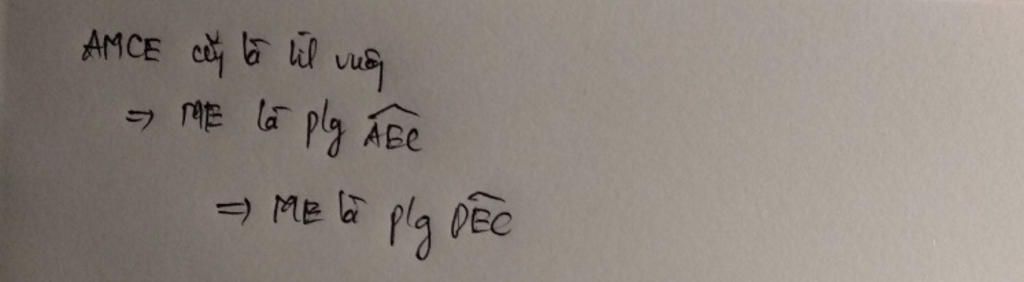 AMCE cũg là h́l vuôg
⇒ ME là p/g AEC
⇒ ME là p/g DEC